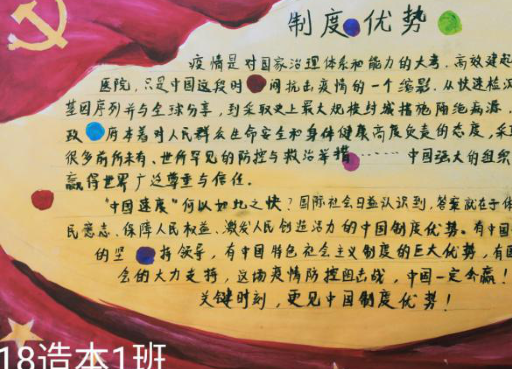 制度优势
疫情是对国家治理体系和能力的大考.高效建起
医院,只是中国这段时间抗击疫情的一个缩影.从快速检测
基因序列并与全球分享,到采取史上最大规模封城措施隔绝病源.
政府本着对人民群众生命安全和身体健康高度负责的态度,采
很多前所未有、世所罕见的防控与救治举措……中国强大的组织
赢得世界广泛尊重与信任.
"中国速度"何以如此之快?国际社会日益认识到,答案就在于体
民意志、保障人民权益、激发人民创造活力的中国制度优势。有中国
的坚持领导,有中国特色社会主义制度的巨大优势,有
念的大力支持,这场疫情防控阻击战,中国一定会赢!
关键时刻,更见中国制度优势!
18造本1班